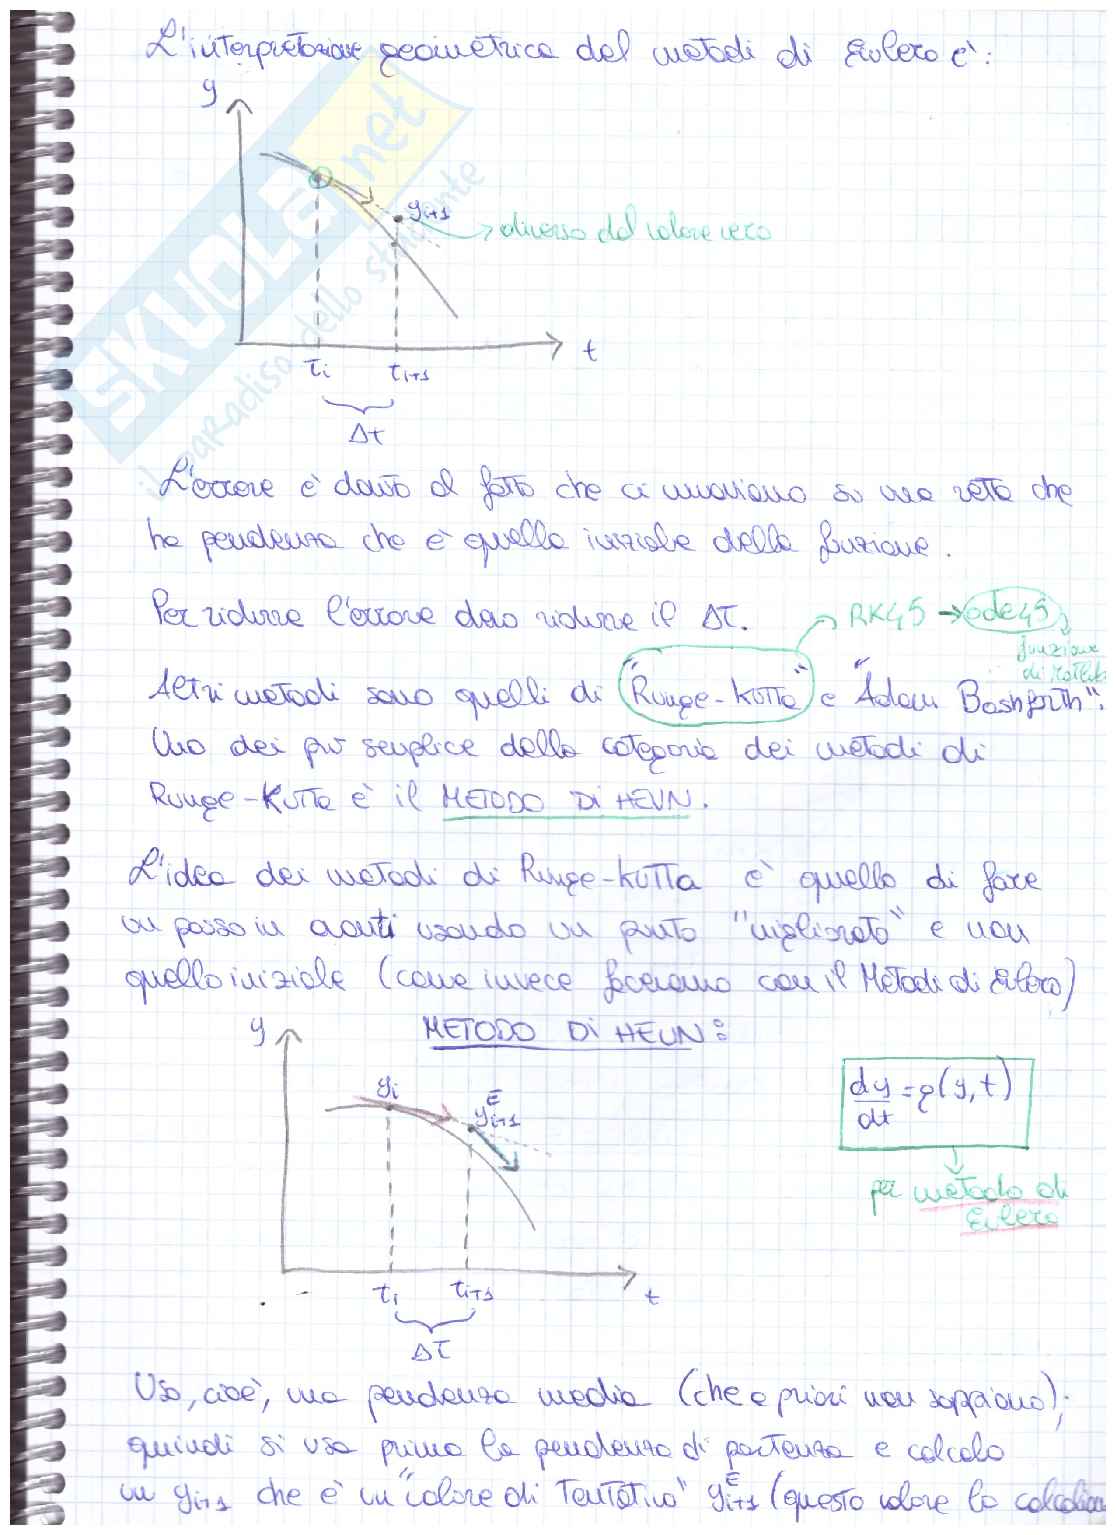 L'interpretazione geometrica del metodi di Eulero è:
y
yi+1
→ diverso dal valore vero
t
ti
ti+1
Δt
L'errore è dovuto al fatto che ci muoviamo su una retta che
ha pendenza che è quella iniziale della funzione.
Per ridurre l'errore devo ridurre il Δt.
RK45 → ode45
funzione
di Matlab
Altri metodi sono quelli di "Runge-Kutta" e "Adam Bashforth".
Uno dei più semplice della categoria dei metodi di
Runge-Kutta è il METODO DI HEUN.
L'idea dei metodi di Runge-Kutta è quello di fare
un passo in avanti usando un punto "migliorato" e non
quello iniziale (come invece facevamo con il Metodi di Eulero)
METODO DI HEUN:
y
yi
yEi+1
dy/dt = g(y,t)
per metodo di
Eulero
ti
ti+1
t
Δt
Uso, cioè, una pendenza media (che a priori non sappiamo);
quindi si usa prima la pendenza di partenza e calcolo
un yi+1 che è un "valore di tentativo" yEi+1 (questo valore lo
SKUOLA.net
il paradiso dello studente